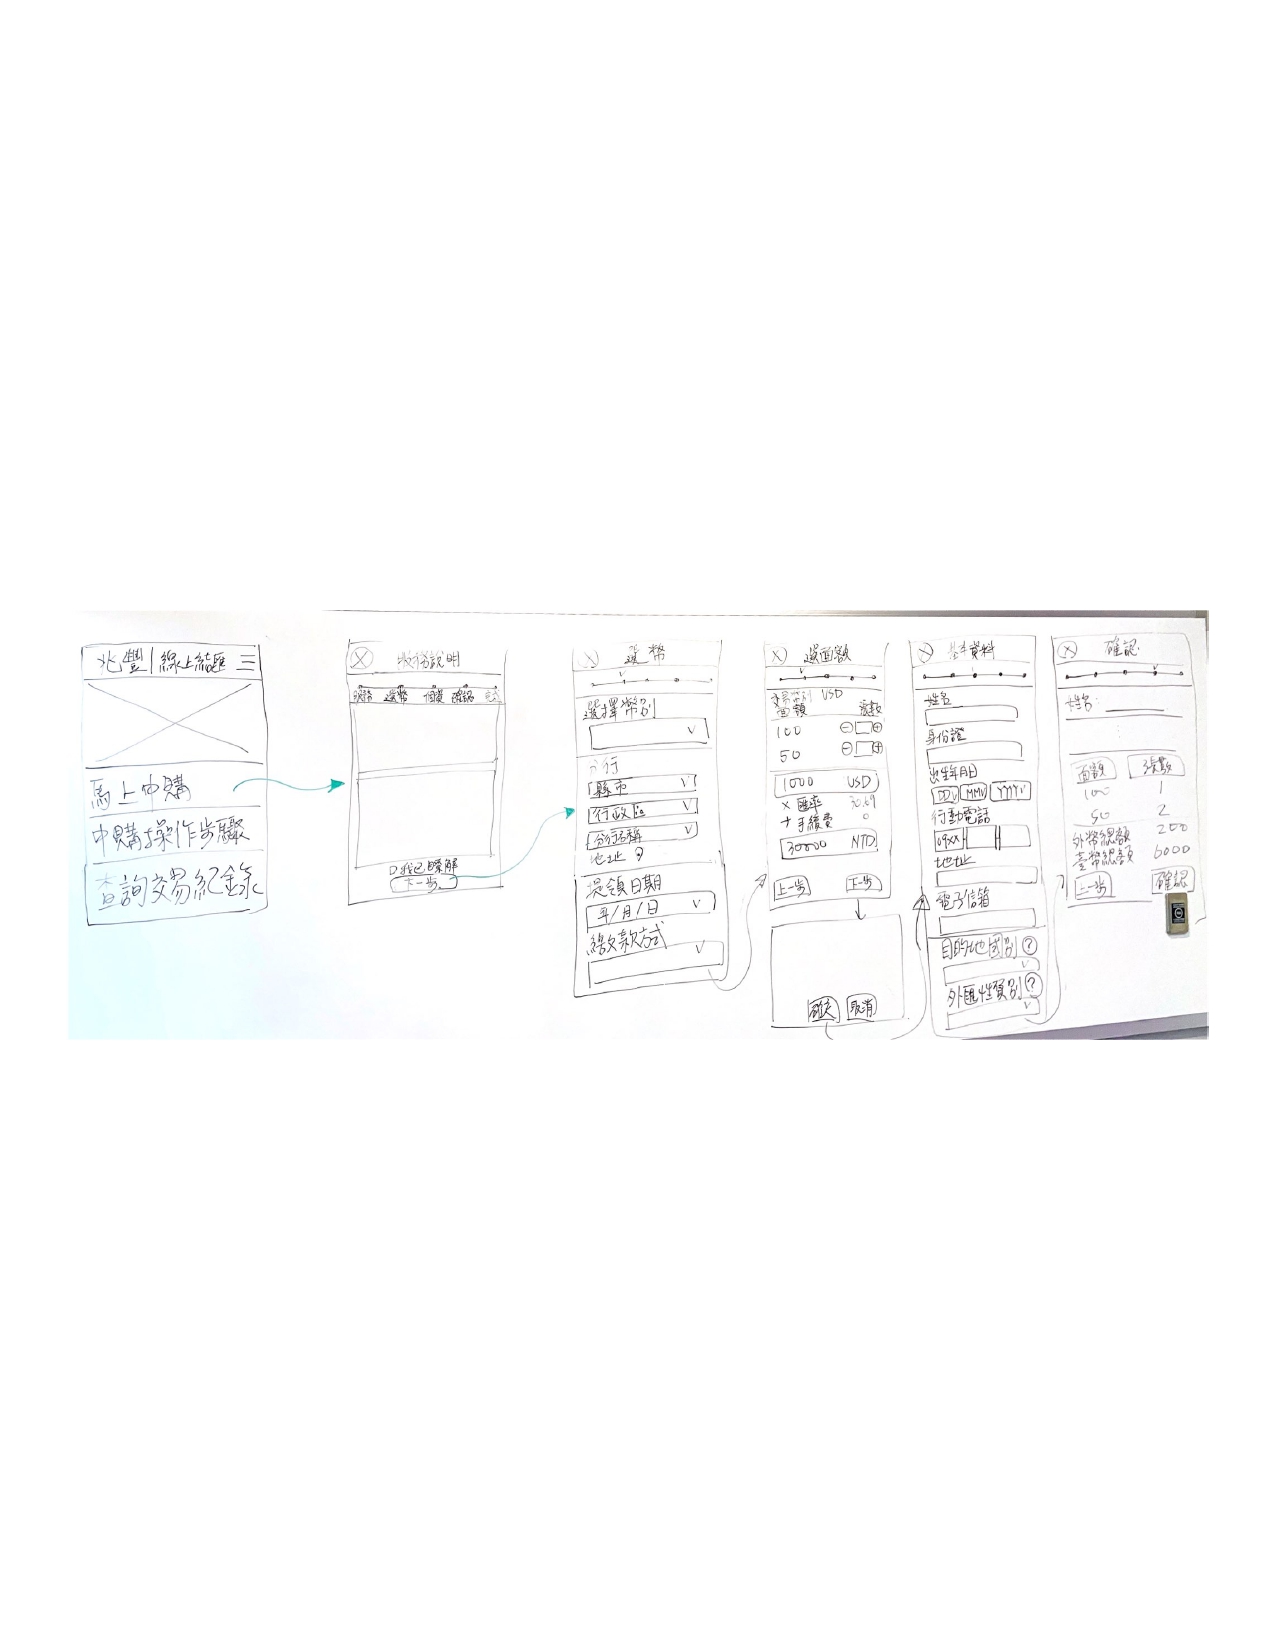 兆豐 | 線上結匯
馬上申購
申購操作步驟
查詢交易紀錄
服務說明
選幣 個資 確認
我已瞭解
下一步
選幣
選擇幣別
分行
縣市
行政區
分行名稱
地址
提領日期
年/月/日
繳款方式
選面額
交易幣別 USD
面額 張數
100
50
1000 USD
× 匯率 30.69
+ 手續費 0
30000 NTD
上一步 下一步
確定 取消
基本資料
姓名
身份證
出生年月日
DD MM YYYY
行動電話
09xx
地址
電子信箱
目的地國別 ?
外匯性質別 ?
確認
姓名:
面額 張數
100 1
50 2
外幣總額 200
臺幣總額 6000
上一步 確認